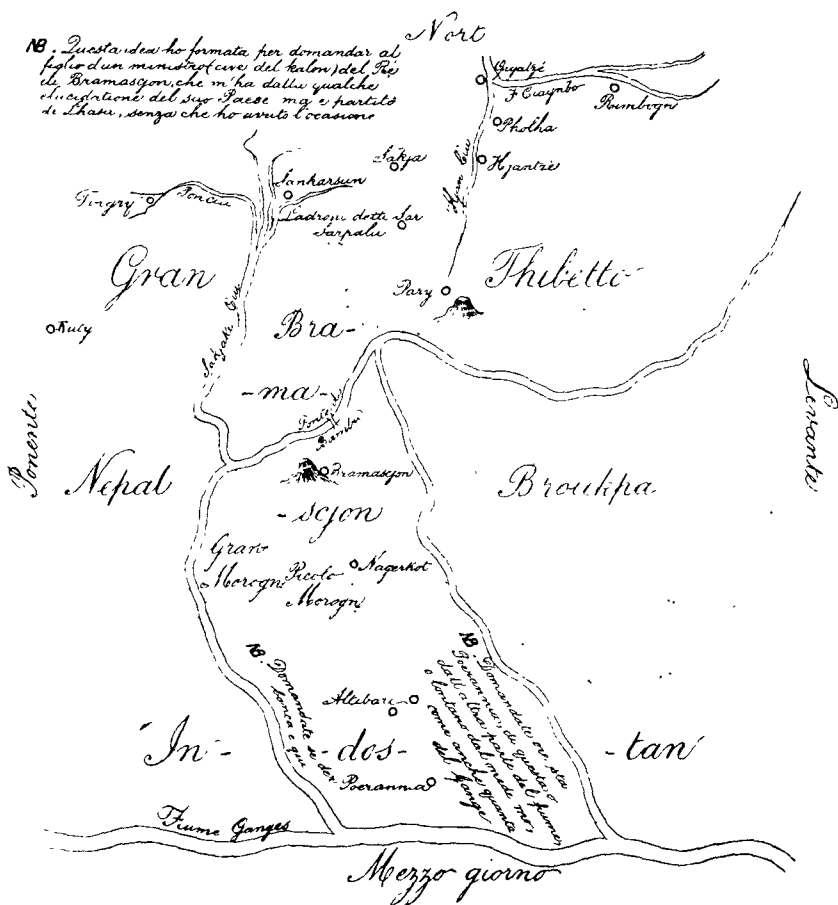 Nort
NB. Questa idea ho formata per domandar al
figlio d'un ministro (cive del kalon) del Rè
di Bramasgon, che m'ha dallu qualche
elucidatione del suo Paese ma e partito
di Lhasa, senza che ho avuto l'ocasione
Gigatzé
F Ciaynbo
Rimbogn
Pholha
Hjantzè
Hjan Ciu
Sakja
Sankarsun
Tingry
Ponciu
Ladroni detti Sar
Sarpalu
Gran
Thibetto
Pary
Kuty
Sakjaki Ciu
Bra-
-ma-
Ponte di
Bambu
Ponente
Levante
Nepal
Bramascjon
Broukpa
-scjon
Gran
Morogn
Picolo
Morogn
Nagerkot
NB. Domandate se der
bonca e qui
Altibari
NB. Domandate ove sta
Poerannia, di questa, o
dall'altra parte del fiume,
o lontano dal mede mo,
come anche quanta
del Gange
In-
-dos-
-tan
Poerannia
Fiume Ganges
Mezzo giorno